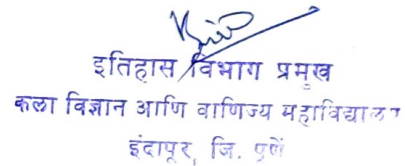 इतिहास विभाग प्रमुख
कला विज्ञान आणि वाणिज्य महाविद्यालय
इंदापूर, जि. पुणे